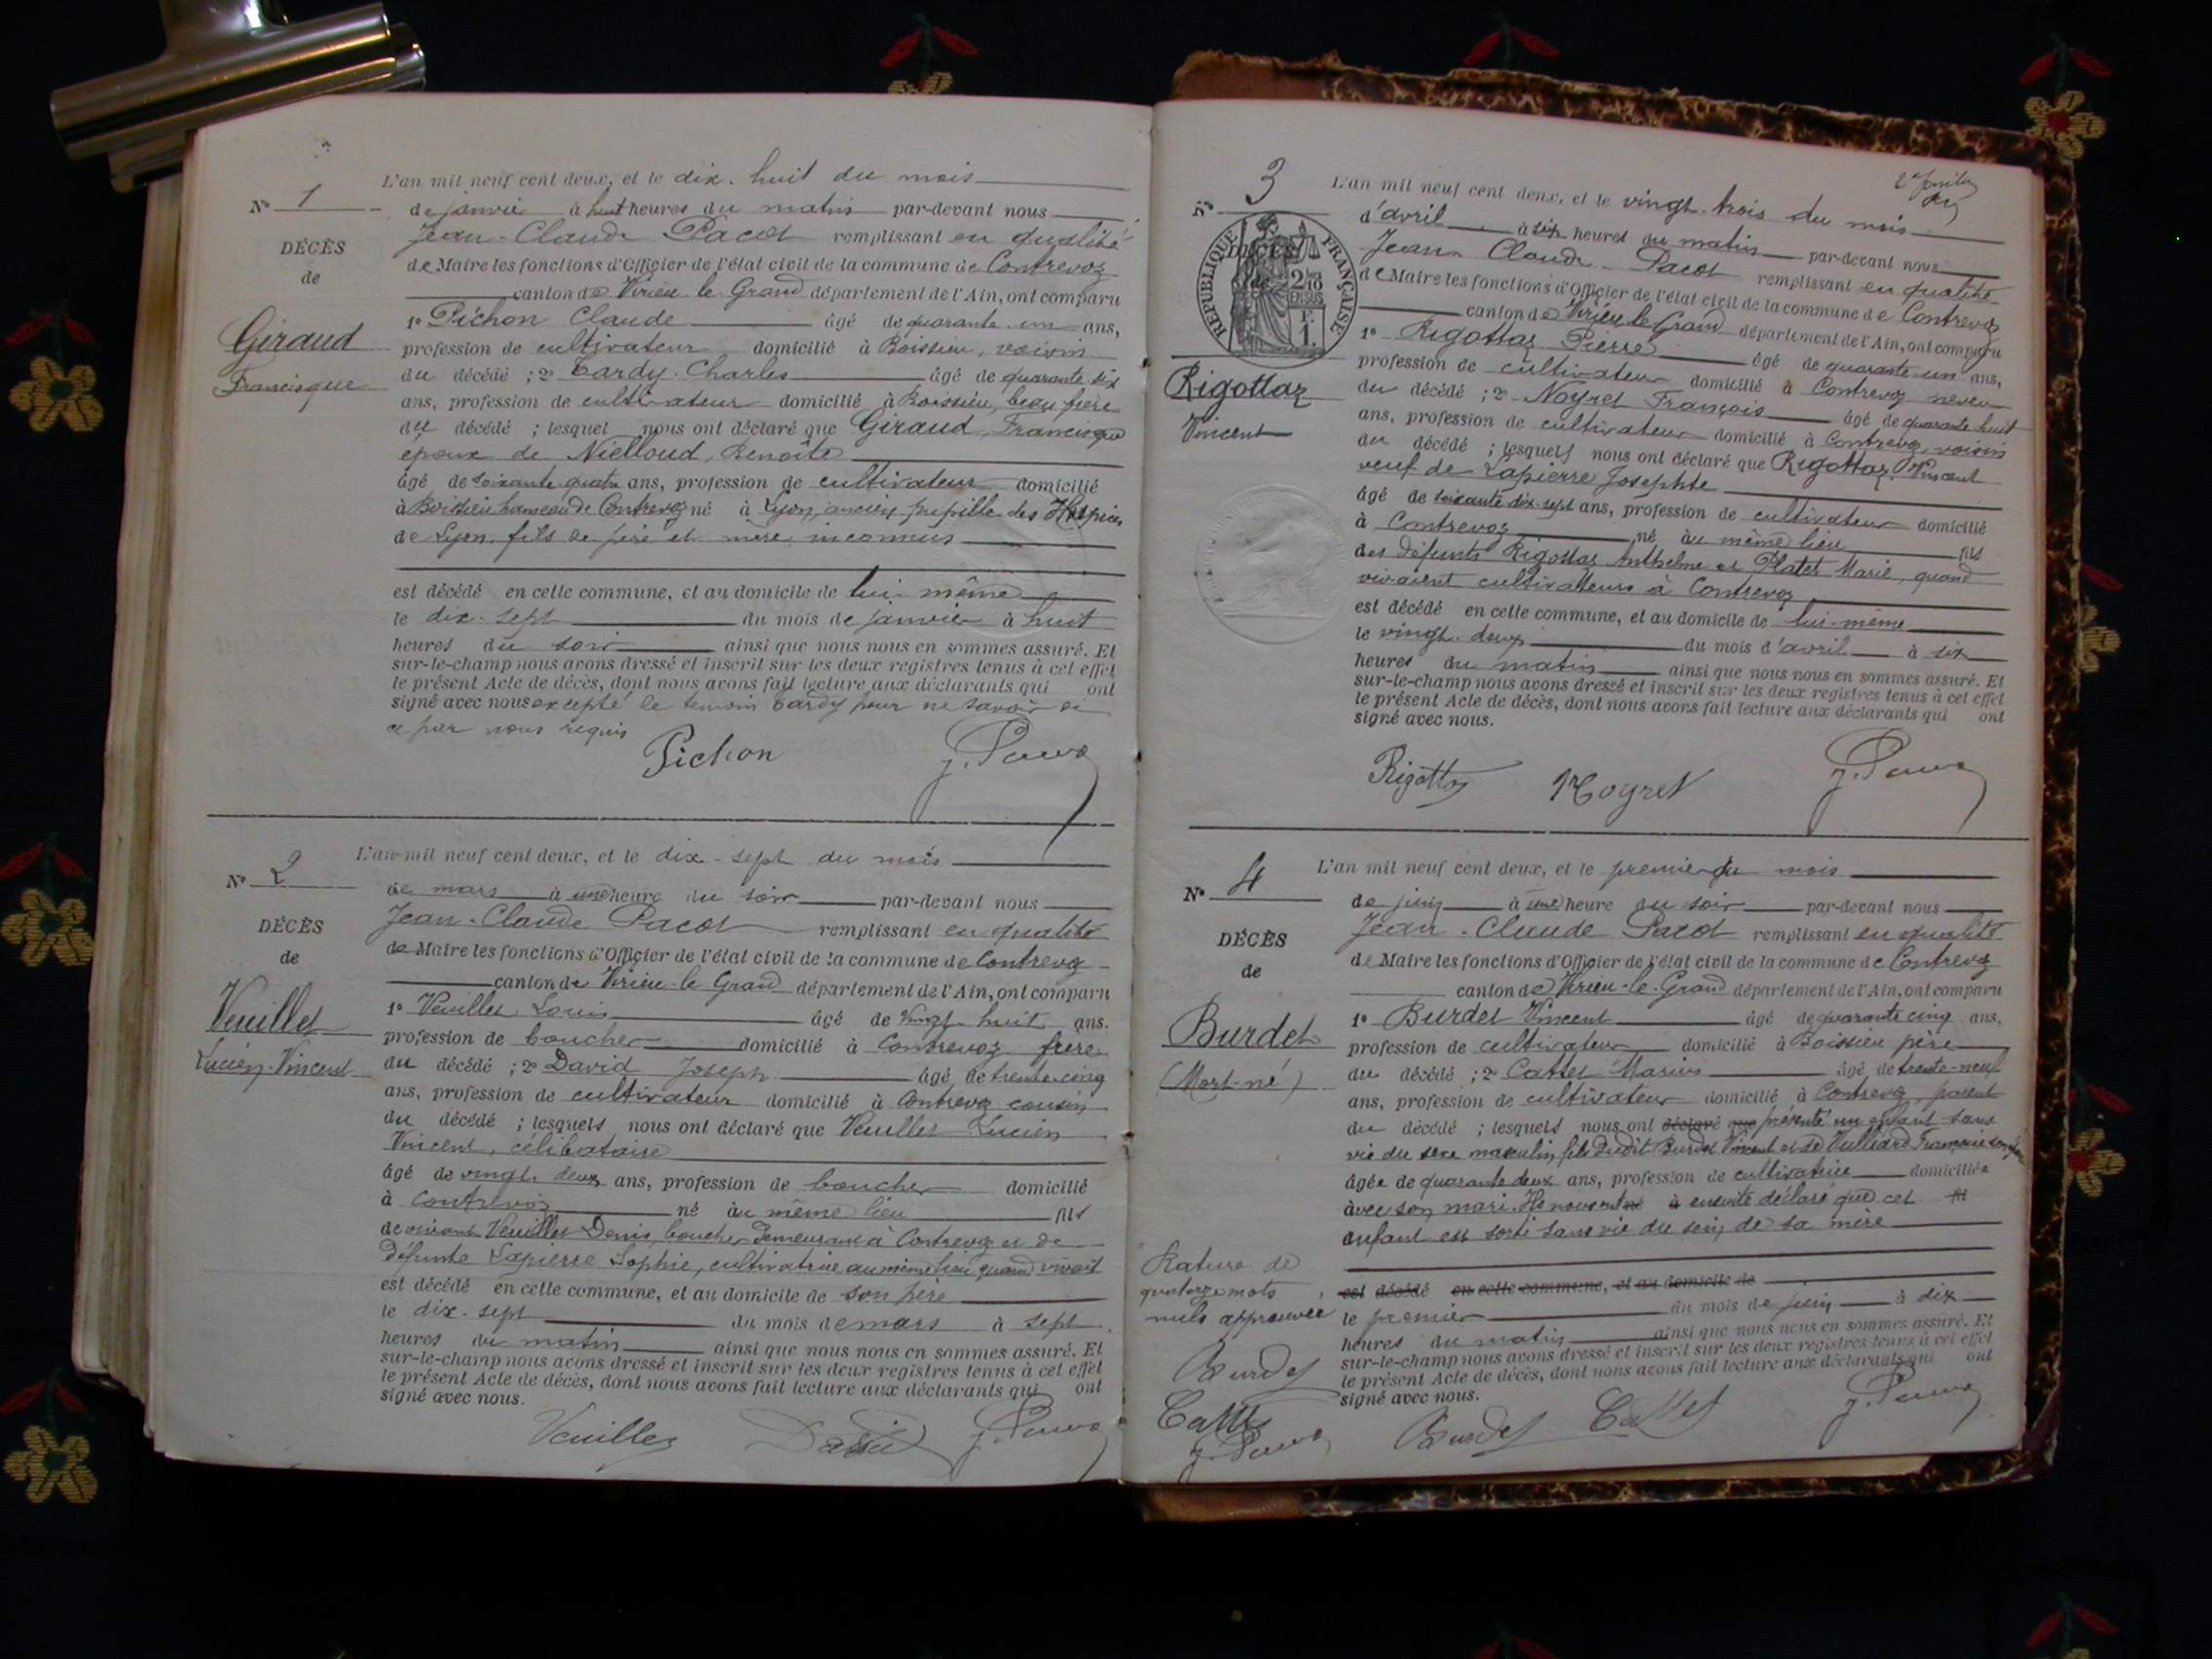 L'an mil neuf cent deux, et le dix-huit du mois
N° 1
de janvier à huit heures du matin par-devant nous
Jean-Claude Pacot remplissant en qualité
DÉCÈS
de Maire les fonctions d'Officier de l'état civil de la commune de Contrevoz
de
canton de Virieu le Grand département de l'Ain, ont comparu
1° Pichon Claude âgé de quarante un ans,
Giraud
profession de cultivateur domicilié à Boissieu, voisin
Francisque
du décédé ; 2° Cardy Charles âgé de quarante six
ans, profession de cultivateur domicilié à Boissieu, beau frère
du décédé ; lesquels nous ont déclaré que Giraud, Francisque
époux de Nielloud, Benoîte
âgé de soixante quatre ans, profession de cultivateur domicilié
à Boissieu hameau de Contrevoz né à Lyon, ancien pupille des Hospices
de Lyon, fils de père et mère inconnus
est décédé en cette commune, et au domicile de lui-même
le dix-sept du mois de janvier à huit
heures du soir ainsi que nous nous en sommes assuré. Et
sur-le-champ nous avons dressé et inscrit sur les deux registres tenus à cet effet
le présent Acte de décès, dont nous avons fait lecture aux déclarants qui ont
signé avec nous excepté le témoin Cardy pour ne savoir de
ce par nous requis
Pichon
L'an mil neuf cent deux, et le dix-sept du mois
N° 2
de mars à une heure du soir par-devant nous
Jean-Claude Pacot remplissant en qualité
DÉCÈS
de Maire les fonctions d'Officier de l'état civil de la commune de Contrevoz
de
canton de Virieu-le Grand département de l'Ain, ont comparu
1° Veuillet Louis âgé de vingt-huit ans.
Veuillet
profession de boucher domicilié à Contrevoz frère
Lucien-Vincent
du décédé ; 2° David Joseph âgé de trente-cinq
ans, profession de cultivateur domicilié à Contrevoz cousin
du décédé ; lesquels nous ont déclaré que Veuillet Lucien
Vincent, célibataire
âgé de vingt-deux ans, profession de boucher domicilié
à Contrevoz né au même lieu fils
de vivant Veuillet Denis, boucher demeurant à Contrevoz et de
défunte Lapierre Sophie, cultivatrice au même lieu quand vivait
est décédé en cette commune, et au domicile de son père
le dix-sept du mois de mars à sept
heures du matin ainsi que nous nous en sommes assuré. Et
sur-le-champ nous avons dressé et inscrit sur les deux registres tenus à cet effet
le présent Acte de décès, dont nous avons fait lecture aux déclarants qui ont
signé avec nous.
Veuillet David
3
L'an mil neuf cent deux, et le vingt-trois du mois
d'avril à six heures du matin par-devant nous
Jean Claude Pacot remplissant en qualité
RÉPUBLIQUE FRANÇAISE
DÉCÈS
de Maire les fonctions d'Officier de l'état civil de la commune de Contrevoz
de
2/10 EN SUS
canton de Virieu le Grand département de l'Ain, ont comparu
F. 1.
1° Rigottaz Pierre âgé de quarante-un ans,
Rigottaz
profession de cultivateur domicilié à Contrevoz neveu
Vincent
du décédé ; 2° Noyret François âgé de quarante huit
ans, profession de cultivateur domicilié à Contrevoz, voisin
du décédé ; lesquels nous ont déclaré que Rigottaz Vincent
veuf de Lapierre Josephte
âgé de soixante dix-sept ans, profession de cultivateur domicilié
à Contrevoz né au même lieu fils
des défunts Rigottaz Anthelme et Platet Marie, quand
vivaient cultivateurs à Contrevoz
est décédé en cette commune, et au domicile de lui-même
le vingt-deux du mois d'avril à six
heures du matin ainsi que nous nous en sommes assuré. Et
sur-le-champ nous avons dressé et inscrit sur les deux registres tenus à cet effet
le présent Acte de décès, dont nous avons fait lecture aux déclarants qui ont
signé avec nous.
Rigottaz Noyret
L'an mil neuf cent deux, et le premier du mois
N° 4
de juin à une heure du soir par-devant nous
Jean-Claude Pacot remplissant en qualité
DÉCÈS
de Maire les fonctions d'Officier de l'état civil de la commune de Contrevoz
de
canton de Virieu-le-Grand département de l'Ain, ont comparu
1° Burdet Vincent âgé de quarante cinq ans,
Burdet
profession de cultivateur domicilié à Boissieu père
(Mort-né)
du décédé ; 2° Cattet Marius âgé de trente-neuf
ans, profession de cultivateur domicilié à Contrevoz, parent
du décédé ; lesquels nous ont déclaré que présenté un enfant sans
vie du sexe masculin, fils dudit Burdet Vincent et de Vulliard Françoise
âgée de quarante deux ans, profession de cultivatrice domiciliée
avec son mari. Ils nous ont né à ensuite déclaré que cet fils
enfant est sorti sans vie du sein de sa mère
Rature de
quatorze mots
nuls approuvée
est décédé en cette commune, et au domicile de
le premier du mois de juin à dix
heures du matin ainsi que nous nous en sommes assuré. Et
sur-le-champ nous avons dressé et inscrit sur les deux registres tenus à cet effet
le présent Acte de décès, dont nous avons fait lecture aux déclarants qui ont
signé avec nous.
Burdet
Cattet
Burdet Cattet